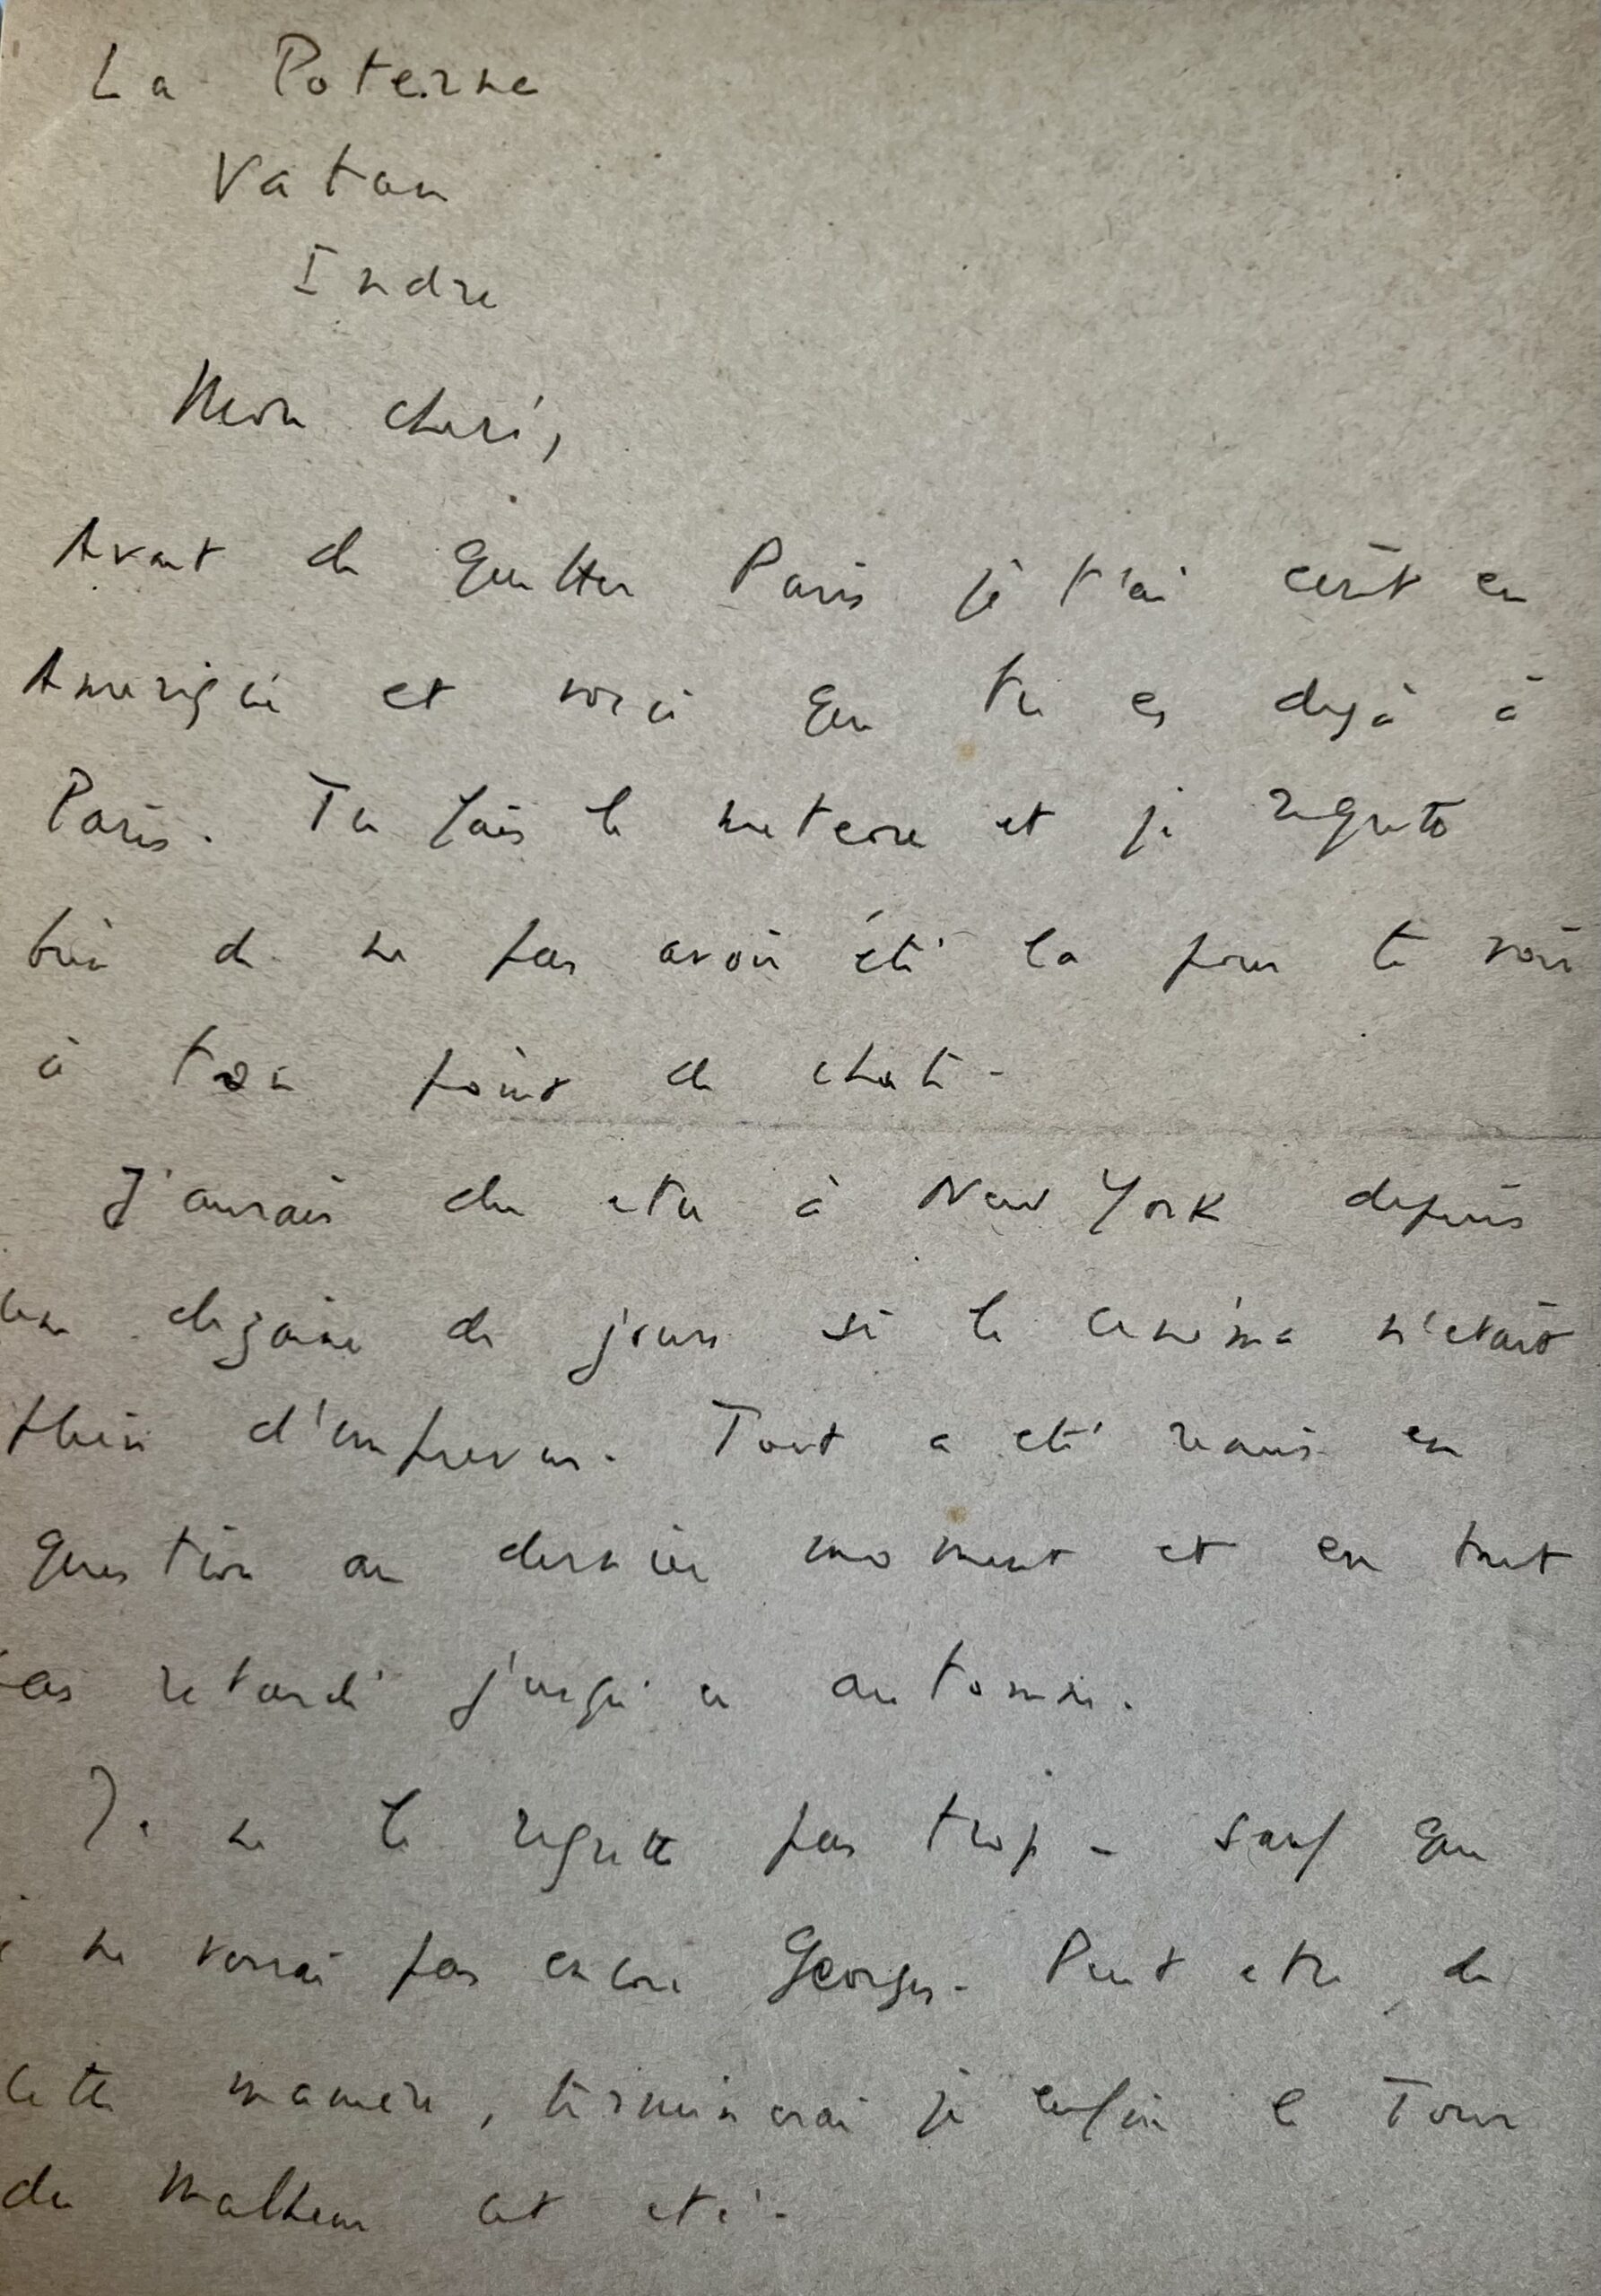 La Poterne
Vatan
Indre
Mon cheri,
Avant de quitter Paris je t'ai écrit en
Amerique et voici que tu es dejà à
Paris. Tu fais le meteore et je regrette
bien de ne pas avoir été la pour te voir
à ton point de chute -
J'aurais du etre à New York depuis
une dizaine de jours si le cinéma n'etait
plein d'imprevus. Tout a eté remis en
question au dernier moment et en tout
cas retardé jusqu'a automne.
Je ne le regrette pas trop - sauf que
je ne verrai pas encore Georges - Peut etre, de
cette manière, terminerai je enfin le Tour
du Malheur cet eté -